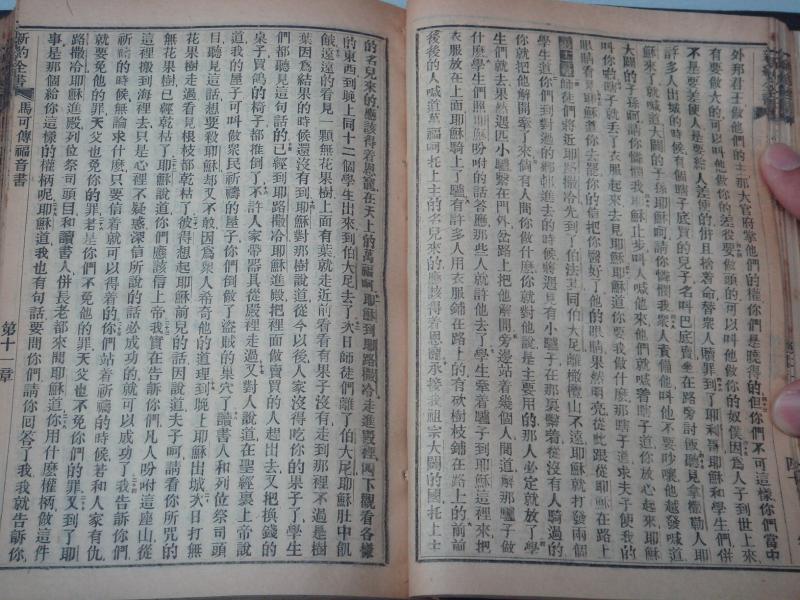 外邦君王做他們的主那大官府掌他們的權你們是曉得的但你們不可這樣你們當中
有要做大的可以叫他做你的差役要做頭的可以叫他做你的奴僕因爲人子到世上來
不是要差使人是要給人差使的併且捨着命替衆人贖罪到了耶利哥耶穌和學生們併
許多人出城的時候有個瞎子底買的兒子名叫巴底買坐在路旁討飯聽見拿撒勒人耶
穌來了就喊道大闢的子孫耶穌呵請你憐憫我衆人責備他叫他不要吵嚷他越發喊道
大闢的子孫呵請你憐憫我耶穌止步叫人喊他來他們就喊着瞎子道你放心起來耶穌
叫你他瞎子就丟了衣服起來去見耶穌耶穌道你要我做什麽那瞎子道求夫子使我的
眼睛看見耶穌道你去罷你的信把你醫好了他的眼睛果然明亮從此跟從耶穌在路上
師徒們將近耶路撒冷先到了伯法其同伯大尼離橄欖山不遠耶穌就打發兩個
學生道你們到對過的鄉邨進去的時候將遇見有小驢子在那裏繫着從沒有人騎過的
你就把他解開牽了來倘有人問你做什麽你就對他說是主要用的那人必定就放了學
生們就去果然遇匹小驢繫在門外岔路上把他解開旁邊站着幾個人問道解那驢子做
什麽學生們照耶穌吩咐的話答應那些人就許他去了學生牽着驢子到耶穌這裡來把
衣服放在上面耶穌騎上了驢有許多人用衣服鋪在路上的有砍樹枝鋪在路上的前前
後後的人喊道萬福呵托上主的名兒來的應該得着恩寵承接我祖宗大闢的國托上主
的名兒來的應該得着恩寵在天上的萬福呵耶穌到耶路撒冷走進殿裡四下觀看各樣
的東西到晚上同十二個學生出來到伯大尼去了次日師徒們離了伯大尼耶穌肚中飢
餓遠遠的看見一顆無花果樹上面有葉就走近前看看有果子沒有走到那裡不過是樹
葉因爲結果的時候還沒有到耶穌對那樹說道從今以後人家沒得吃你的果子了學生
們都聽見這句話的已經到耶路撒冷耶穌進殿把裡面做賣買的人趕出去又把換錢的
桌子買鴿的椅子都推倒了不許人家帶器具從殿裡走過又對人說道在聖經裏上帝說
道我的屋子可叫做衆民祈禱的屋子你們倒做了盜賊的巢穴了讀書人和列位祭司頭
目聽見這話想要殺耶穌却又不敢因爲衆人希奇他的道理到晚上耶穌出城次日打無
花果樹走過看見根枝都乾枯了彼得想起耶穌前兒的話因說道夫子呵請看你所咒的
無花果樹已經乾枯了耶穌說道你們應該信上帝我實在告訴你們凡人吩咐這座山從
這裡搬到海裡去只是心裡不疑惑深信所說的話必成功的就可以成功了我告訴你們
祈禱的時候無論求什麽只要信着就可以得着的你們站着祈禱的時候若和人家有仇
就要免他的罪天父也免你的罪若是你們不免他的罪天父也不免你們的罪又到了耶
路撒冷耶穌進殿列位祭司頭目和讀書人併長老都來問耶穌道你用什麽權柄做這件
事是那個給你這樣的權柄呢耶穌道我也有句話要問你們請你回答了我我就告訴你
新約全書
馬可傳福音書
第十一章